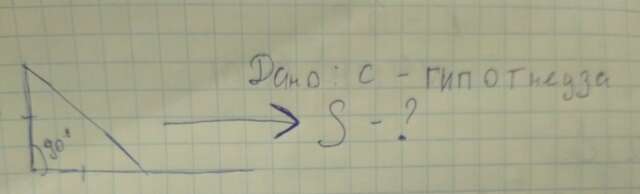 Дано: с - гипотнеуза
90°
S - ?